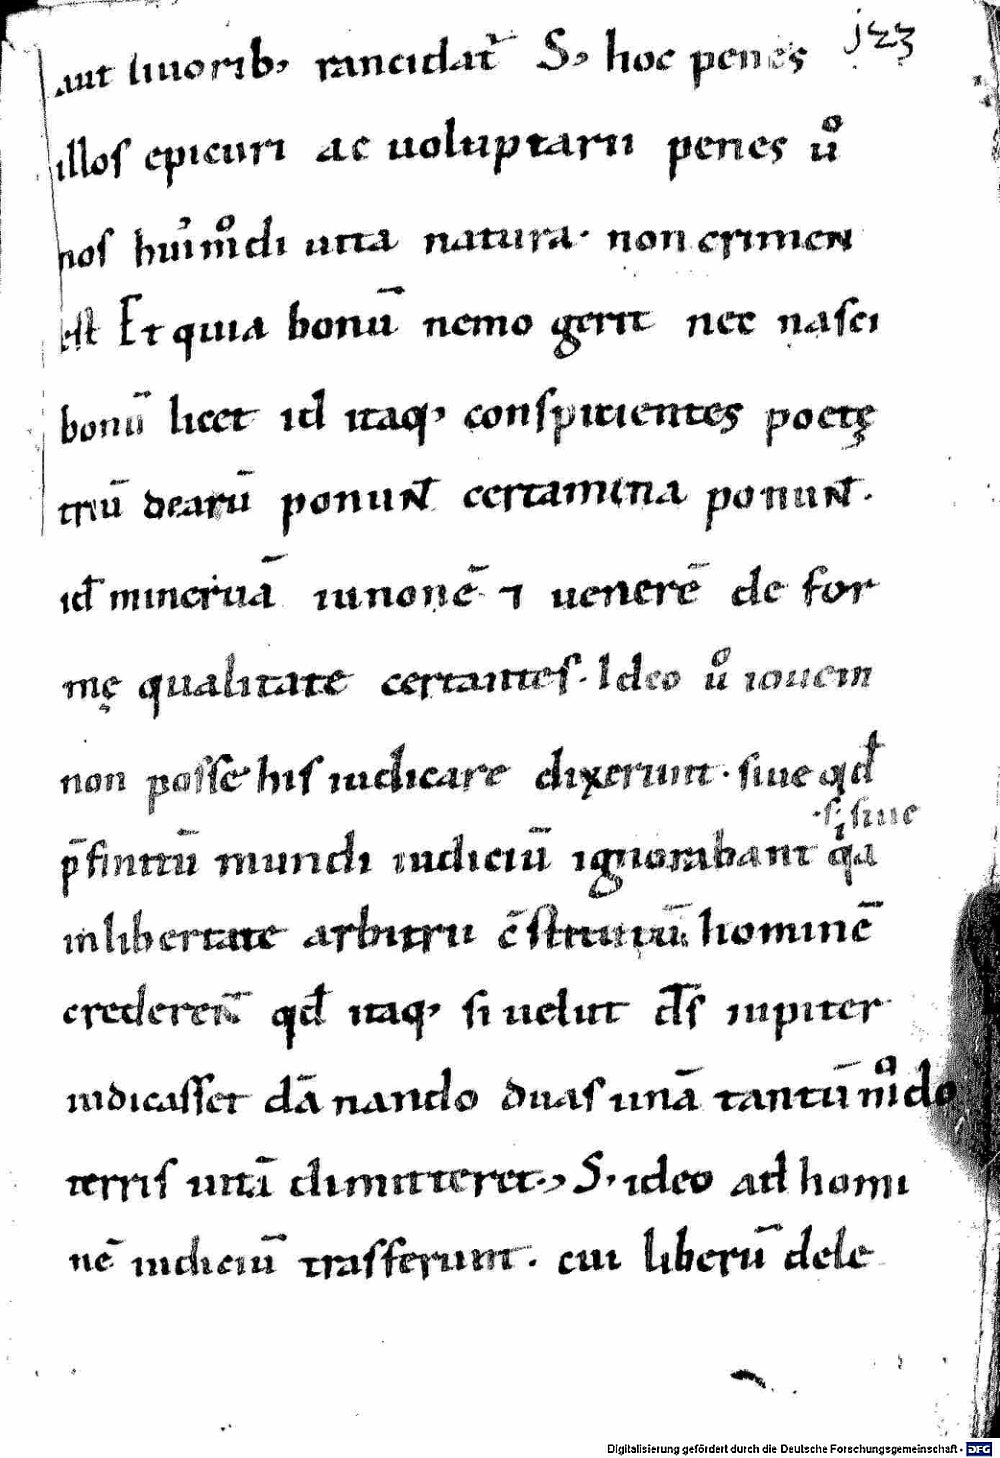 123
aut liuorib, rancidat̄ S, hoc penes
illos epicuri ac uoluptarii penes uͦ
nos hui᾽ mͦdi uita natura· non crimen
est Et quia bonū nemo gerit nec nasci
bonū licet id itaq, conspicientes poetę
triū dearū ponunt̄ certamina ponunt̄.
id̄ mineruā iunonē ⁊ uenerē de for
mę qualitate certantes· Ideo uͦ iouem
non posse his iudicare dixerunt· siue qd̄
·s· siue
p̄finitū mundi iudiciū ignorabant qa
in libertate arbitrii c̄stitutū hominē
crederent̄ qd̄ itaq, si uelut d̄s iupiter
iudicasset dānando duas unā tantūmͦdo
terris uitā dimitteret·, S, ideo ad homi
nē iudiciū trasferunt· cui liberū dele
Digitalisierung gefördert durch die Deutsche Forschungsgemeinschaft - DFG